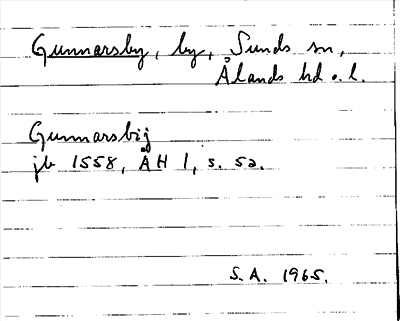 Gunnarsby, by, Sunds sn,
Ålands hd o. l.
Gunnarsbij
jb 1558, ÅH 1, s. 52.
S.A. 1965.